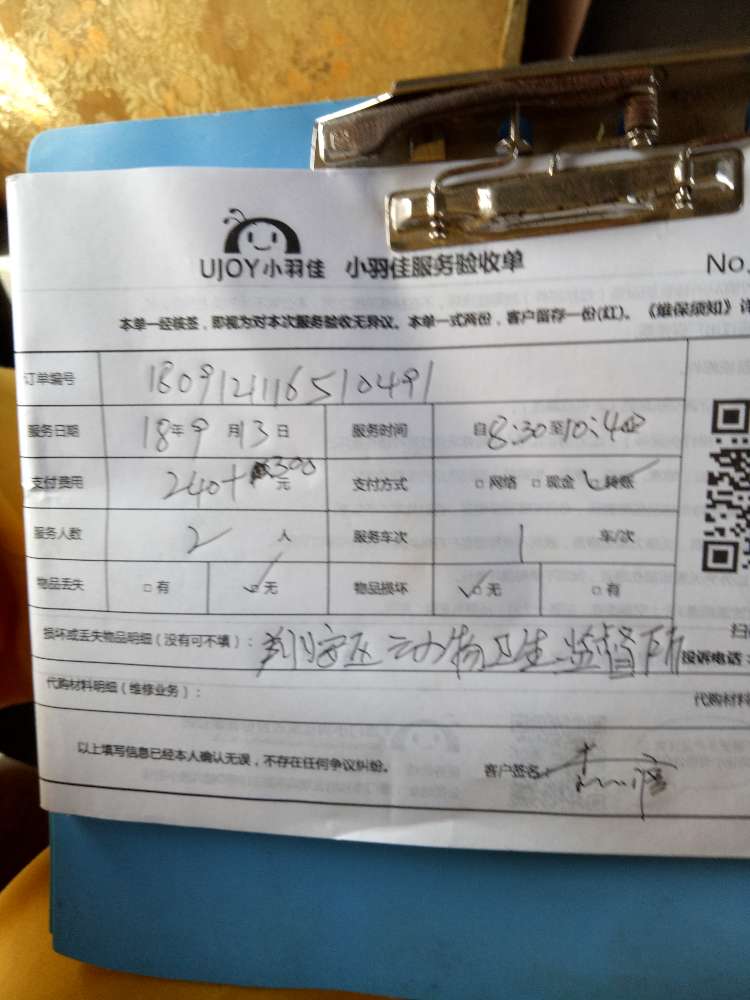 UJOY小羽佳 小羽佳服务验收单 No.
本单一经核签，即视为对本次服务验收无异议。本单一式两份，客户留存一份(红)。《维保须知》详
订单编号 180912116510491
服务日期 18年9月13日 服务时间 自8:30至10:40
支付费用 240+300元 支付方式 □网络 □现金 □转账
服务人数 2人 服务车次 1车/次
物品丢失 □有 □无 物品损坏 □无 □有
损坏或丢失物品明细（没有可不填）： 区动物卫生监督所 投诉电话：
代购材料明细（维修业务）： 代购材料
以上填写信息已经本人确认无误，不存在任何争议纠纷。 客户签名：